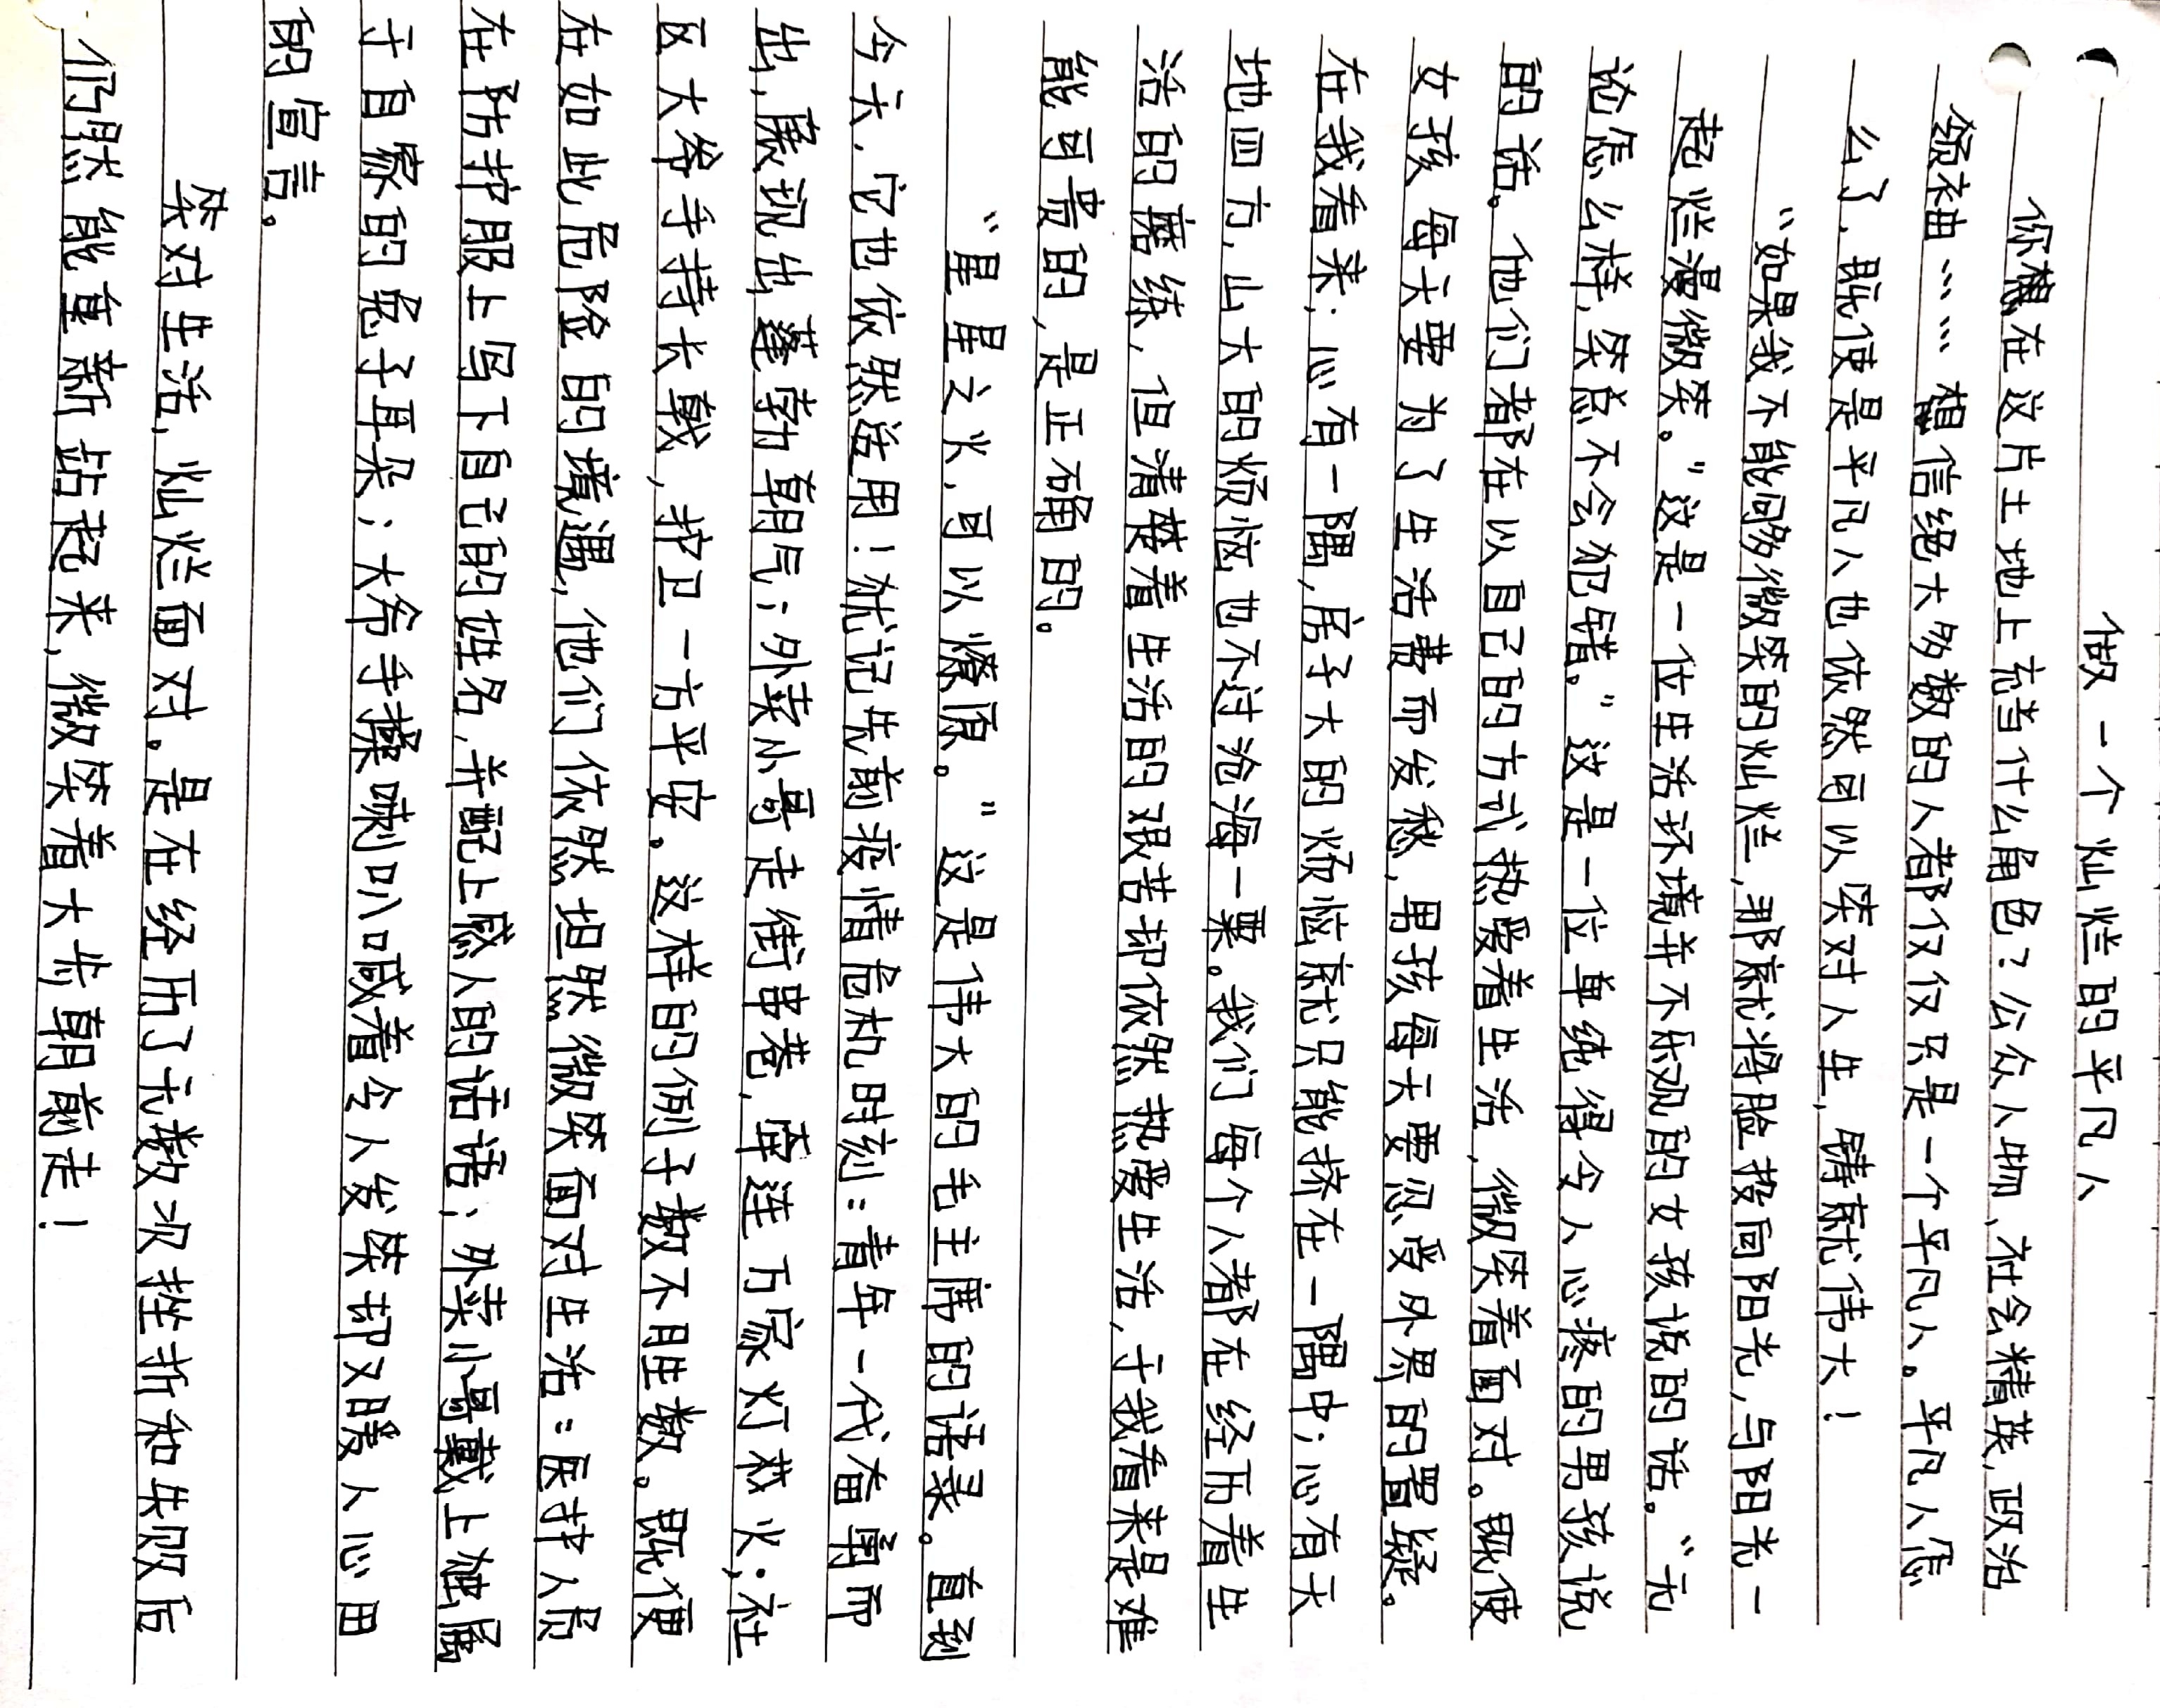 做一个灿烂的平凡人
你想在这片土地上充当什么角色？公众人物、社会精英、政治
领袖…… 相信绝大多数的人都仅仅只是一个平凡人。平凡人怎
么了，既使是平凡人也依然可以笑对人生，铸就伟大！
“如果我不能向够微笑的灿烂，那就将脸按向阳光，与阳光一
起烂漫微笑。”这是一位生活环境并不乐观的女孩说的话。“无
论怎么样，笑总不会犯错。”这是一位单纯得令人心疼的男孩说
的话。他们都在以自己的方式热爱着生活，微笑着面对。既使
女孩每天要为了生活费而发愁，男孩每天要忍受外界的置疑。
在我看来：心有一隅，房子大的烦恼就只能挤在一隅中；心有天
地四方，山大的烦恼也不过沧海一粟。我们每个人都在经历着生
活的磨练，但清楚着生活的艰苦却依然热爱生活，于我看来是难
能可贵的，是正确的。
“星星之火，可以燎原。”这是伟大的毛主席的语录。直到
今天，它也依然适用！犹记先前疫情危机时刻：青年一代奋勇而
出，展现出蓬勃朝气；外卖小哥走街串巷，牵连万家灯热火；社
区大爷手持长戟，护卫一方平安。这样的例子数不胜数。既便
在如此危险的境遇，他们依然坦然微笑面对生活：医护人员
在防护服上写下自己的姓名，并配上感人的话语；外卖小哥戴上独属
于自家的兔子耳朵；大爷手操喇叭喊着令人发笑却又暖人心田
的宣言。
笑对生活，灿烂面对。是在经历了无数次挫折和失败后
仍然能重新站起来，微笑着大步朝前走！